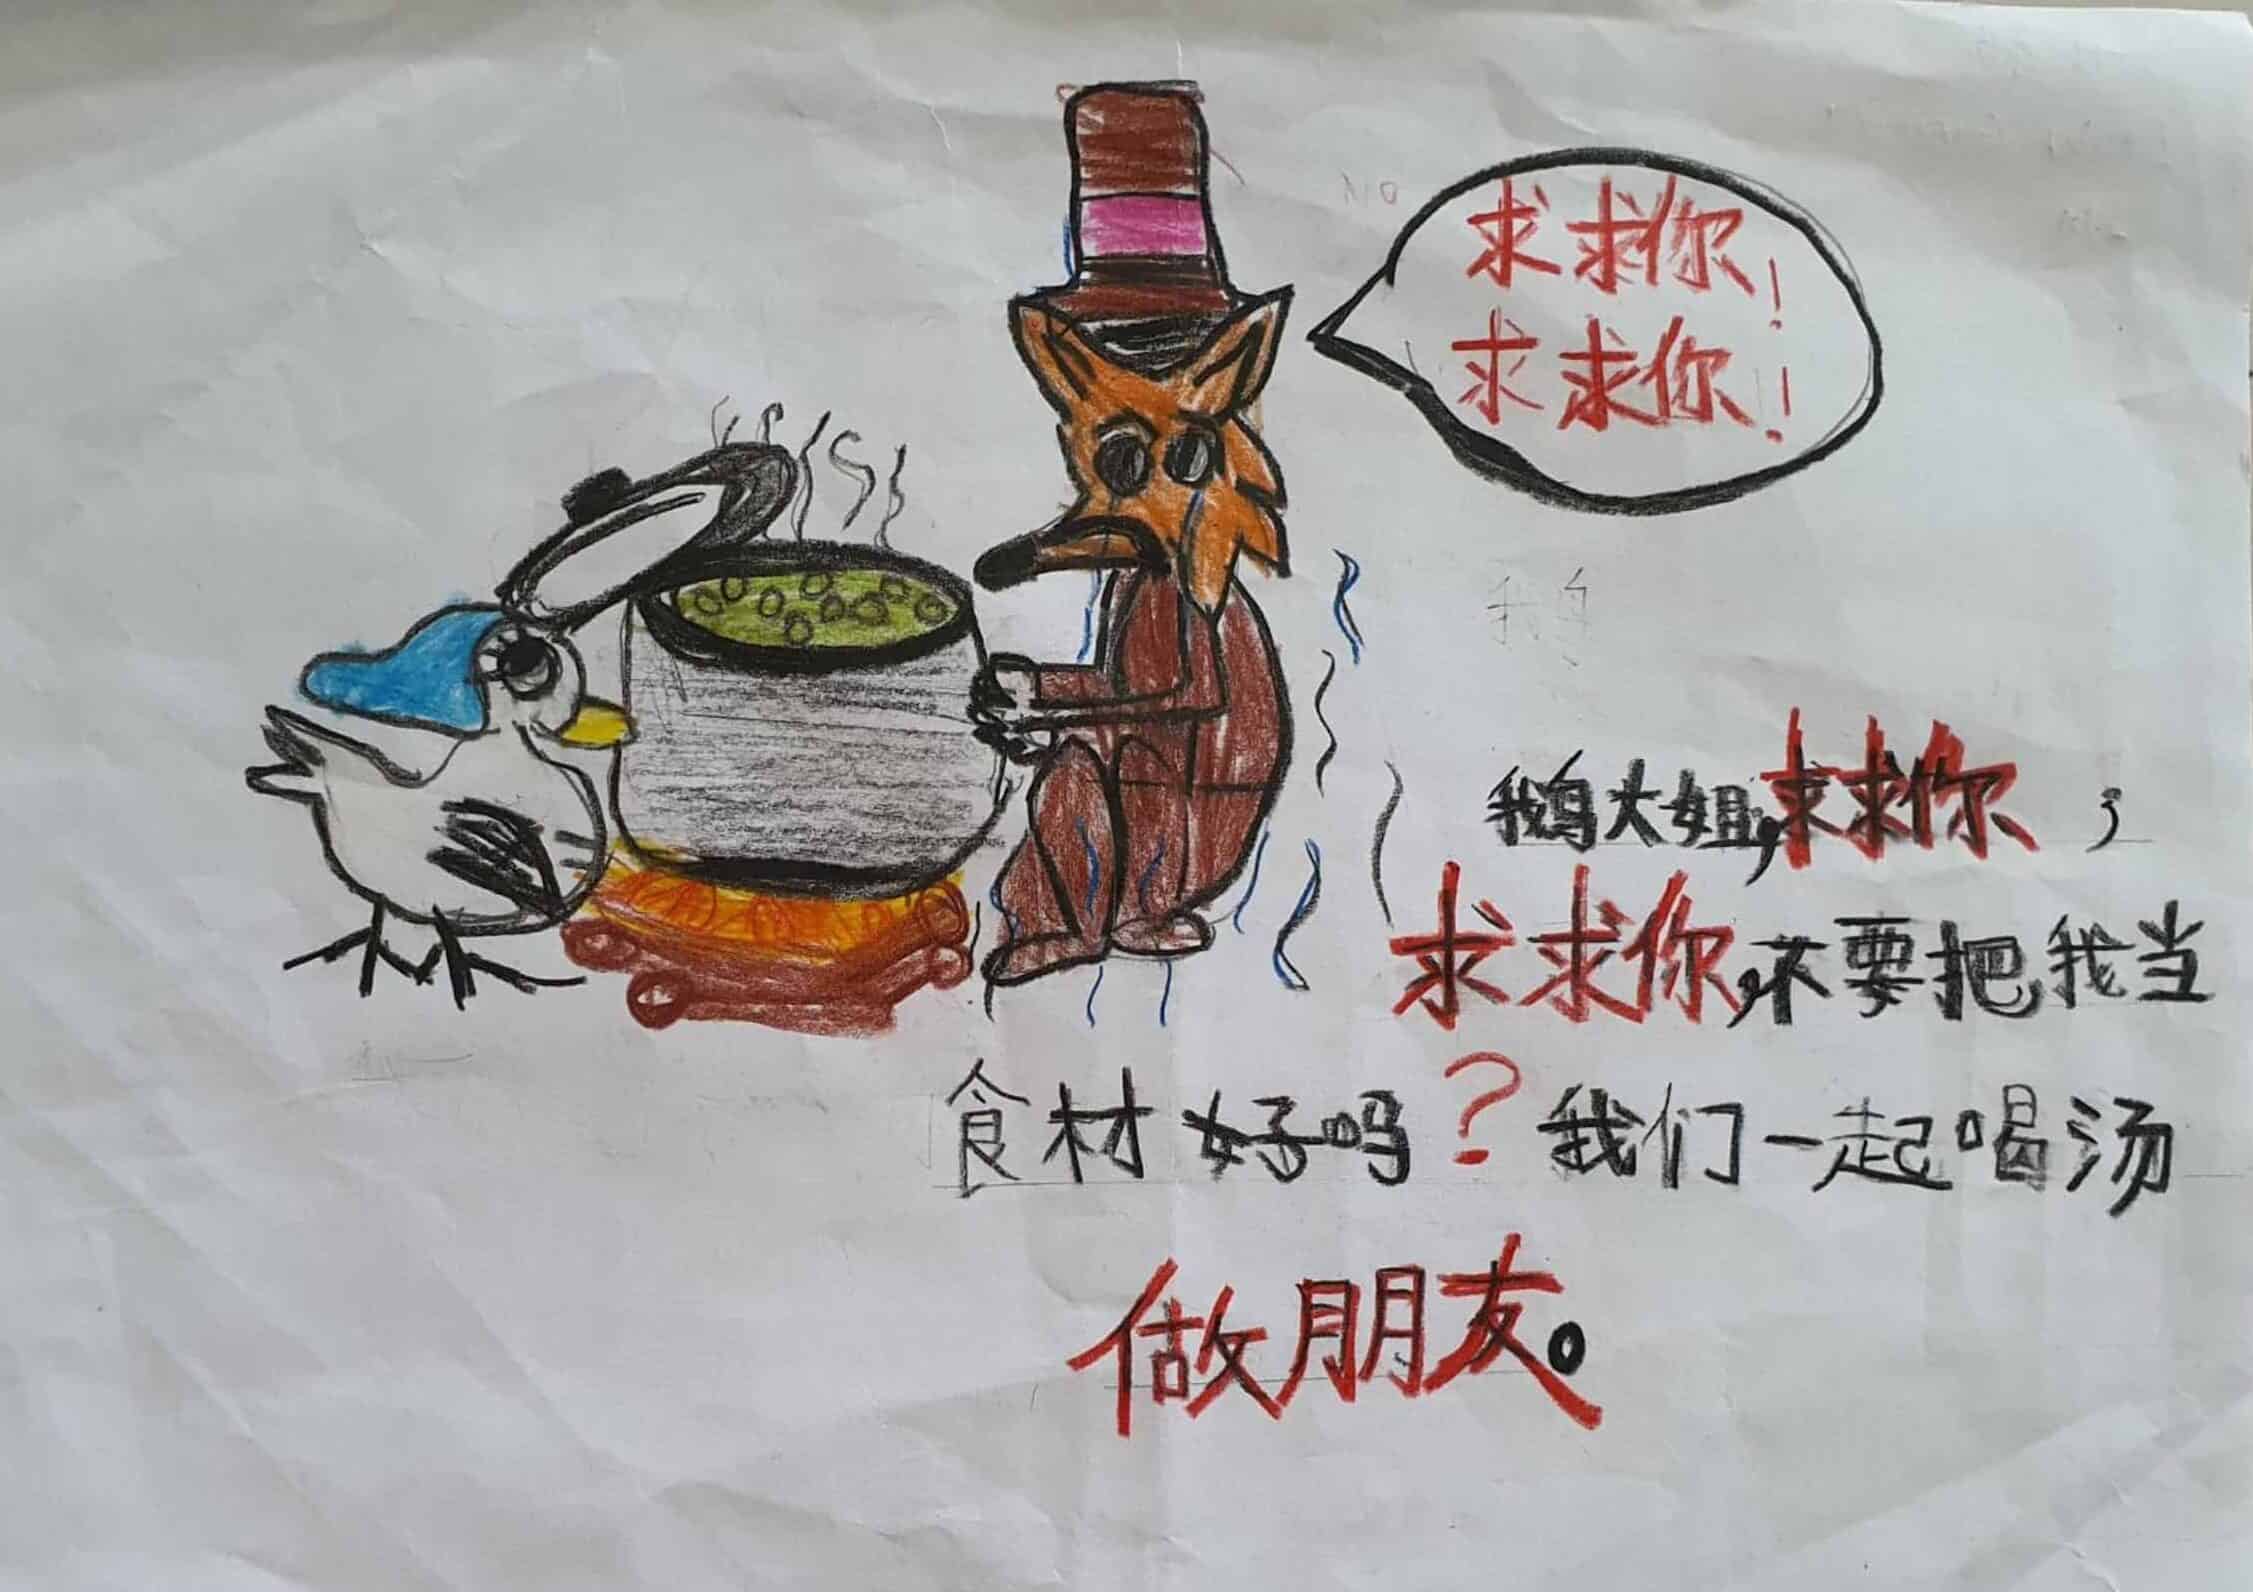 求求你!
求求你!
鹅大姐,求求你,
求求你,不要把我当
食材好吗?我们一起喝汤
做朋友。